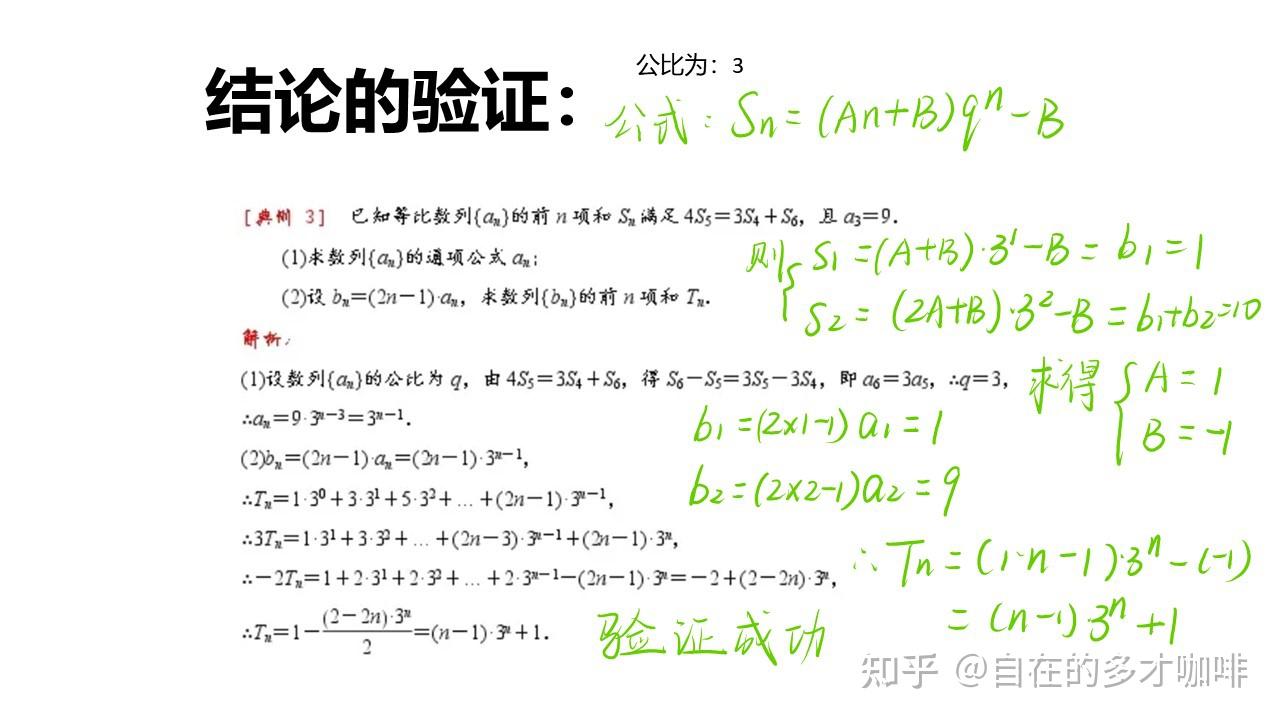 公比为：3
结论的验证：
公式：Sn=(An+B)qⁿ-B
[典例 3] 已知等比数列{aₙ}的前 n 项和 Sₙ 满足 4S₅=3S₄+S₆，且 a₃=9.
(1)求数列{aₙ}的通项公式 aₙ;
(2)设 bₙ=(2n-1)·aₙ，求数列{bₙ}的前 n 项和 Tₙ.
则{S1=(A+B)·3¹-B=b1=1
S2=(2A+B)·3²-B=b1+b2=10
解析：
(1)设数列{aₙ}的公比为 q，由 4S₅=3S₄+S₆，得 S₆-S₅=3S₅-3S₄，即 a₆=3a₅，∴q=3，
∴aₙ=9·3ⁿ⁻³=3ⁿ⁻¹.
(2)bₙ=(2n-1)·aₙ=(2n-1)·3ⁿ⁻¹，
∴Tₙ=1·3⁰+3·3¹+5·3²+…+(2n-1)·3ⁿ⁻¹，
∴3Tₙ=1·3¹+3·3²+…+(2n-3)·3ⁿ⁻¹+(2n-1)·3ⁿ，
∴-2Tₙ=1+2·3¹+2·3²+…+2·3ⁿ⁻¹-(2n-1)·3ⁿ=-2+(2-2n)·3ⁿ，
∴Tₙ=1-(2-2n)·3ⁿ/2=(n-1)·3ⁿ+1.
求得{A=1
B=-1
b1=(2×1-1)a1=1
b2=(2×2-1)a2=9
∴Tn=(1·n-1)·3ⁿ-(-1)
=(n-1)·3ⁿ+1
验证成功
知乎 @自在的多才咖啡